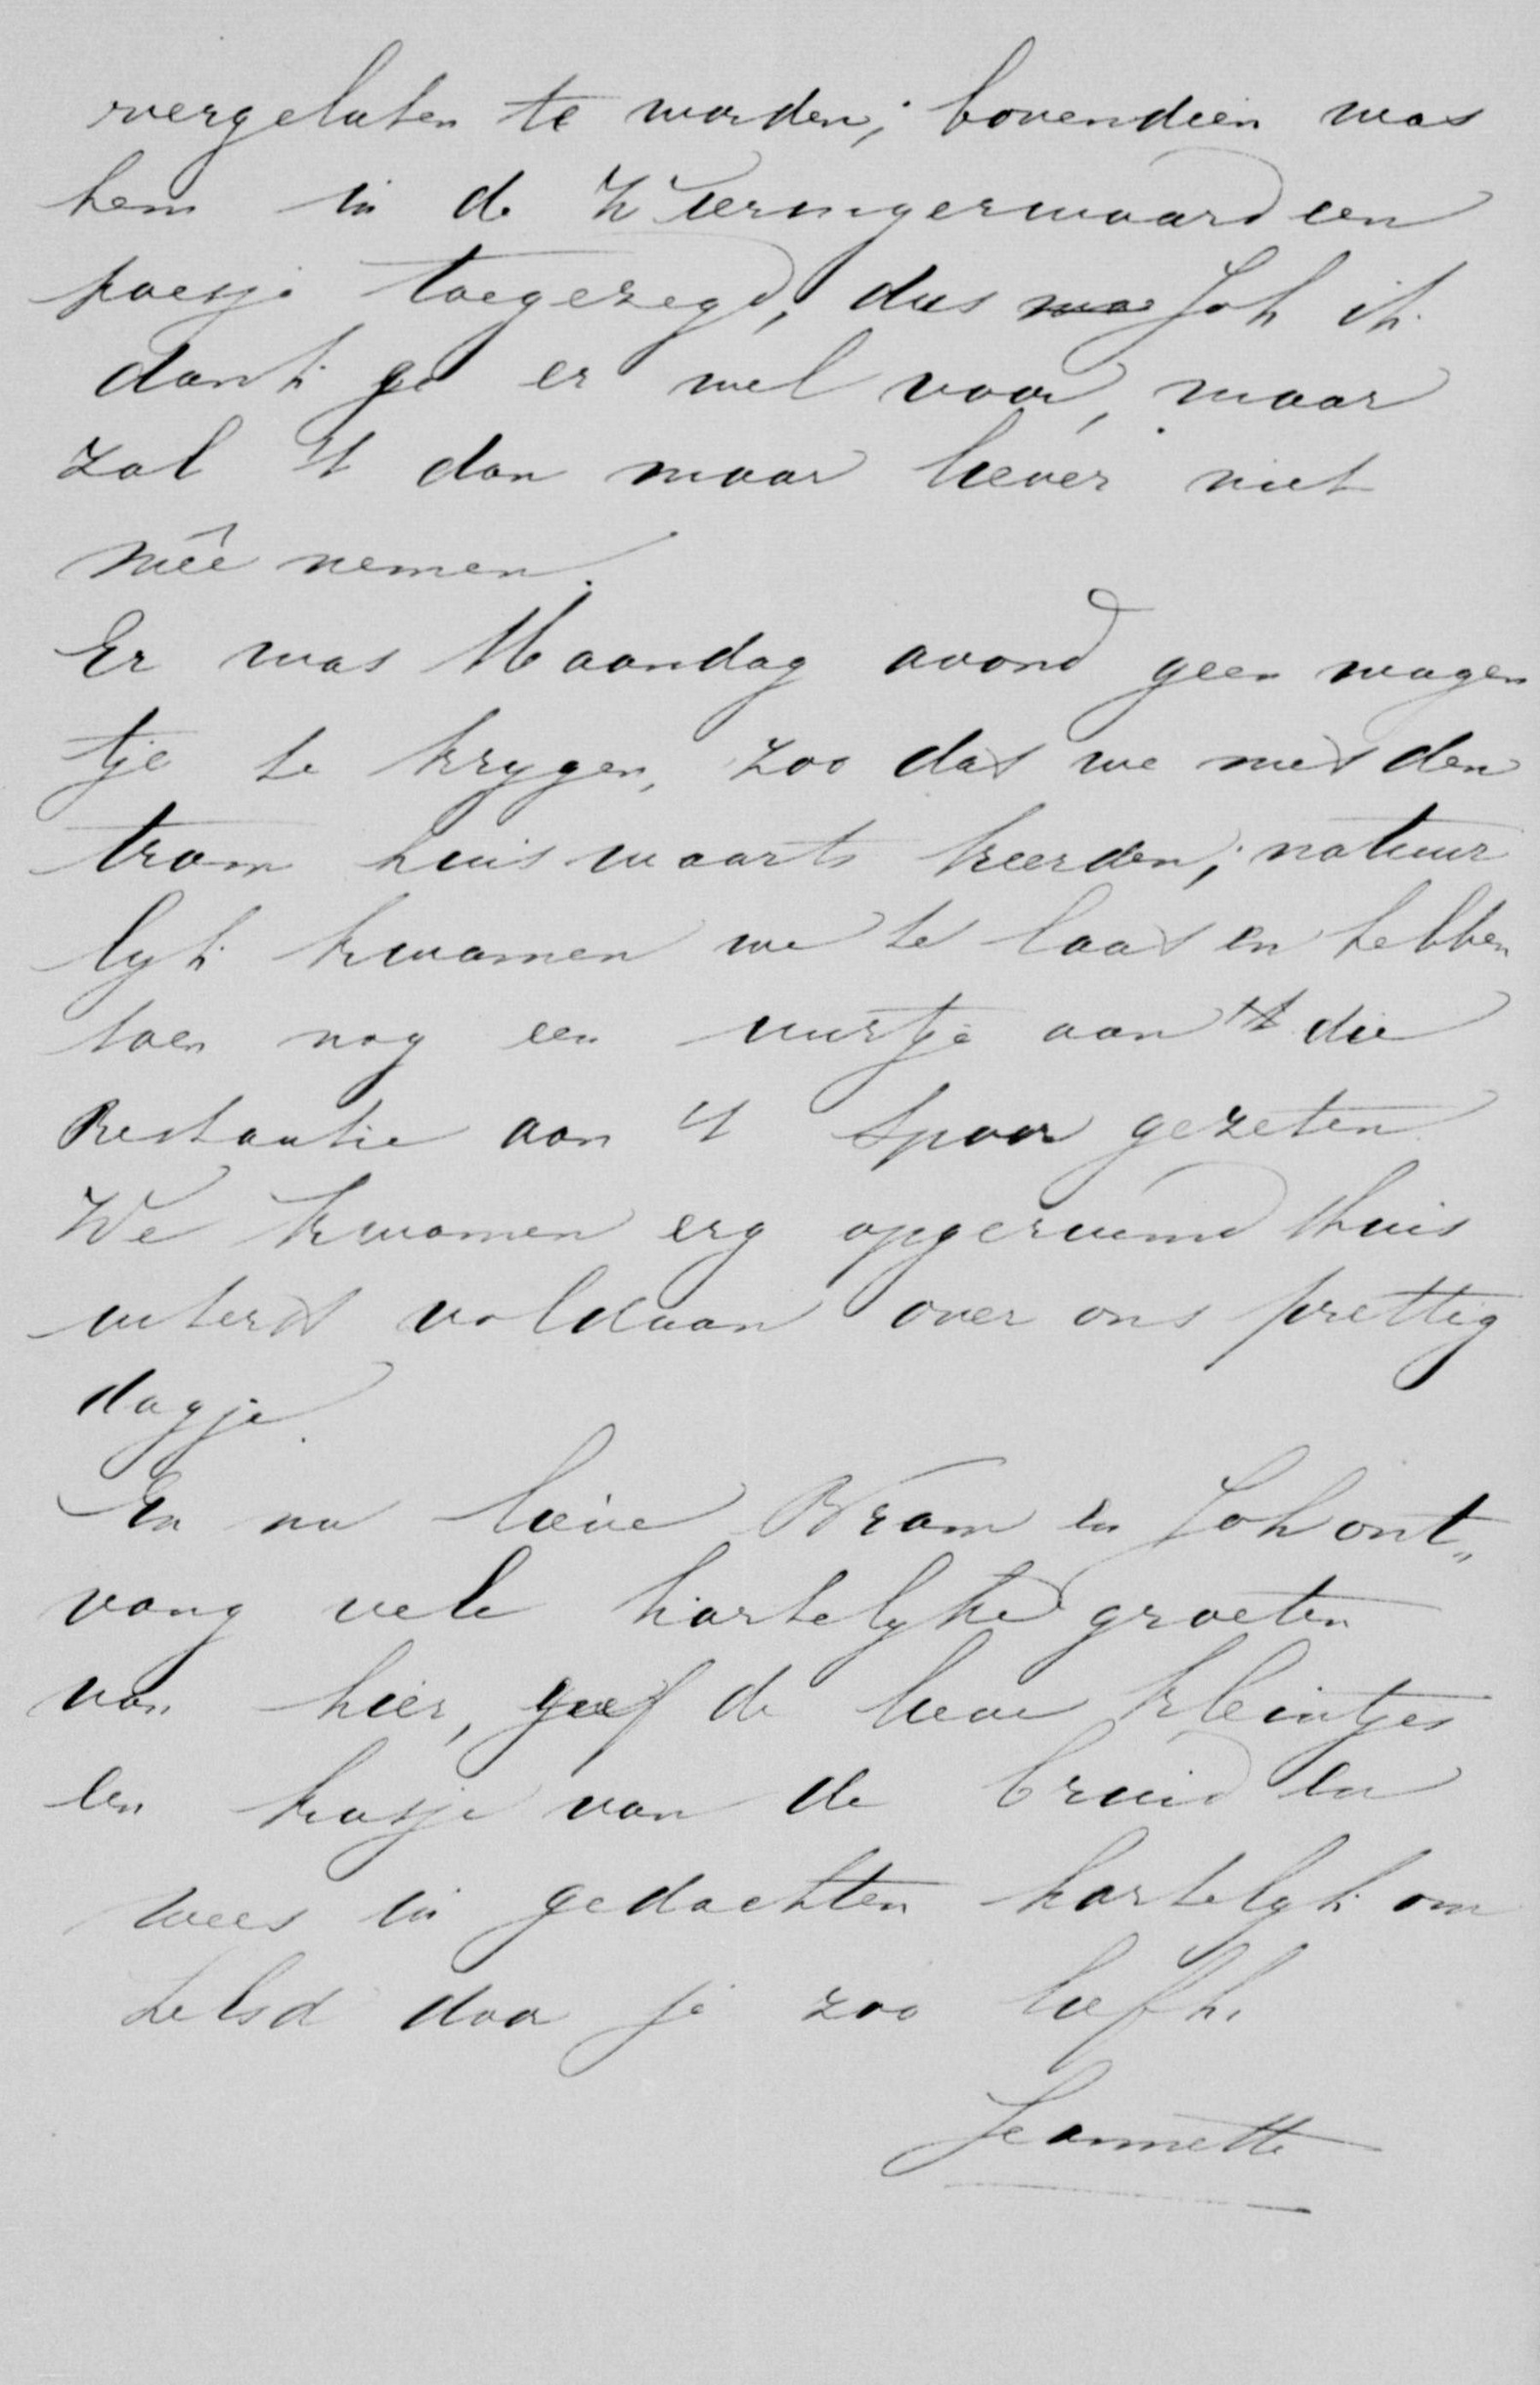 overgelaten te worden; bovendien was
hem in de Wieringerwaard een
poesje toegezegd, dus Joh ik
dank je er wel voor, maar
zal 't dan maar liever niet
mêe nemen.
Er was Maandag avond geen wagen
tje te krygen, zoo dat we met den
tram huiswaarts keerden; natuur
lyk kwamen we te laat en hebben
toen nog een uurtje aan die
Restautie aan 't spoor gezeten.
We kwamen erg opgeruimd thuis
uiterst voldaan over ons prettig
dagje.
En nu lieve Bram en Joh ont„
vang vele hartelyke groeten
van hier, geef de lieve kleintjes
een kusje van de bruid en
wees in gedachten hartelyk om
helsd door je zoo liefh.
Jeannette